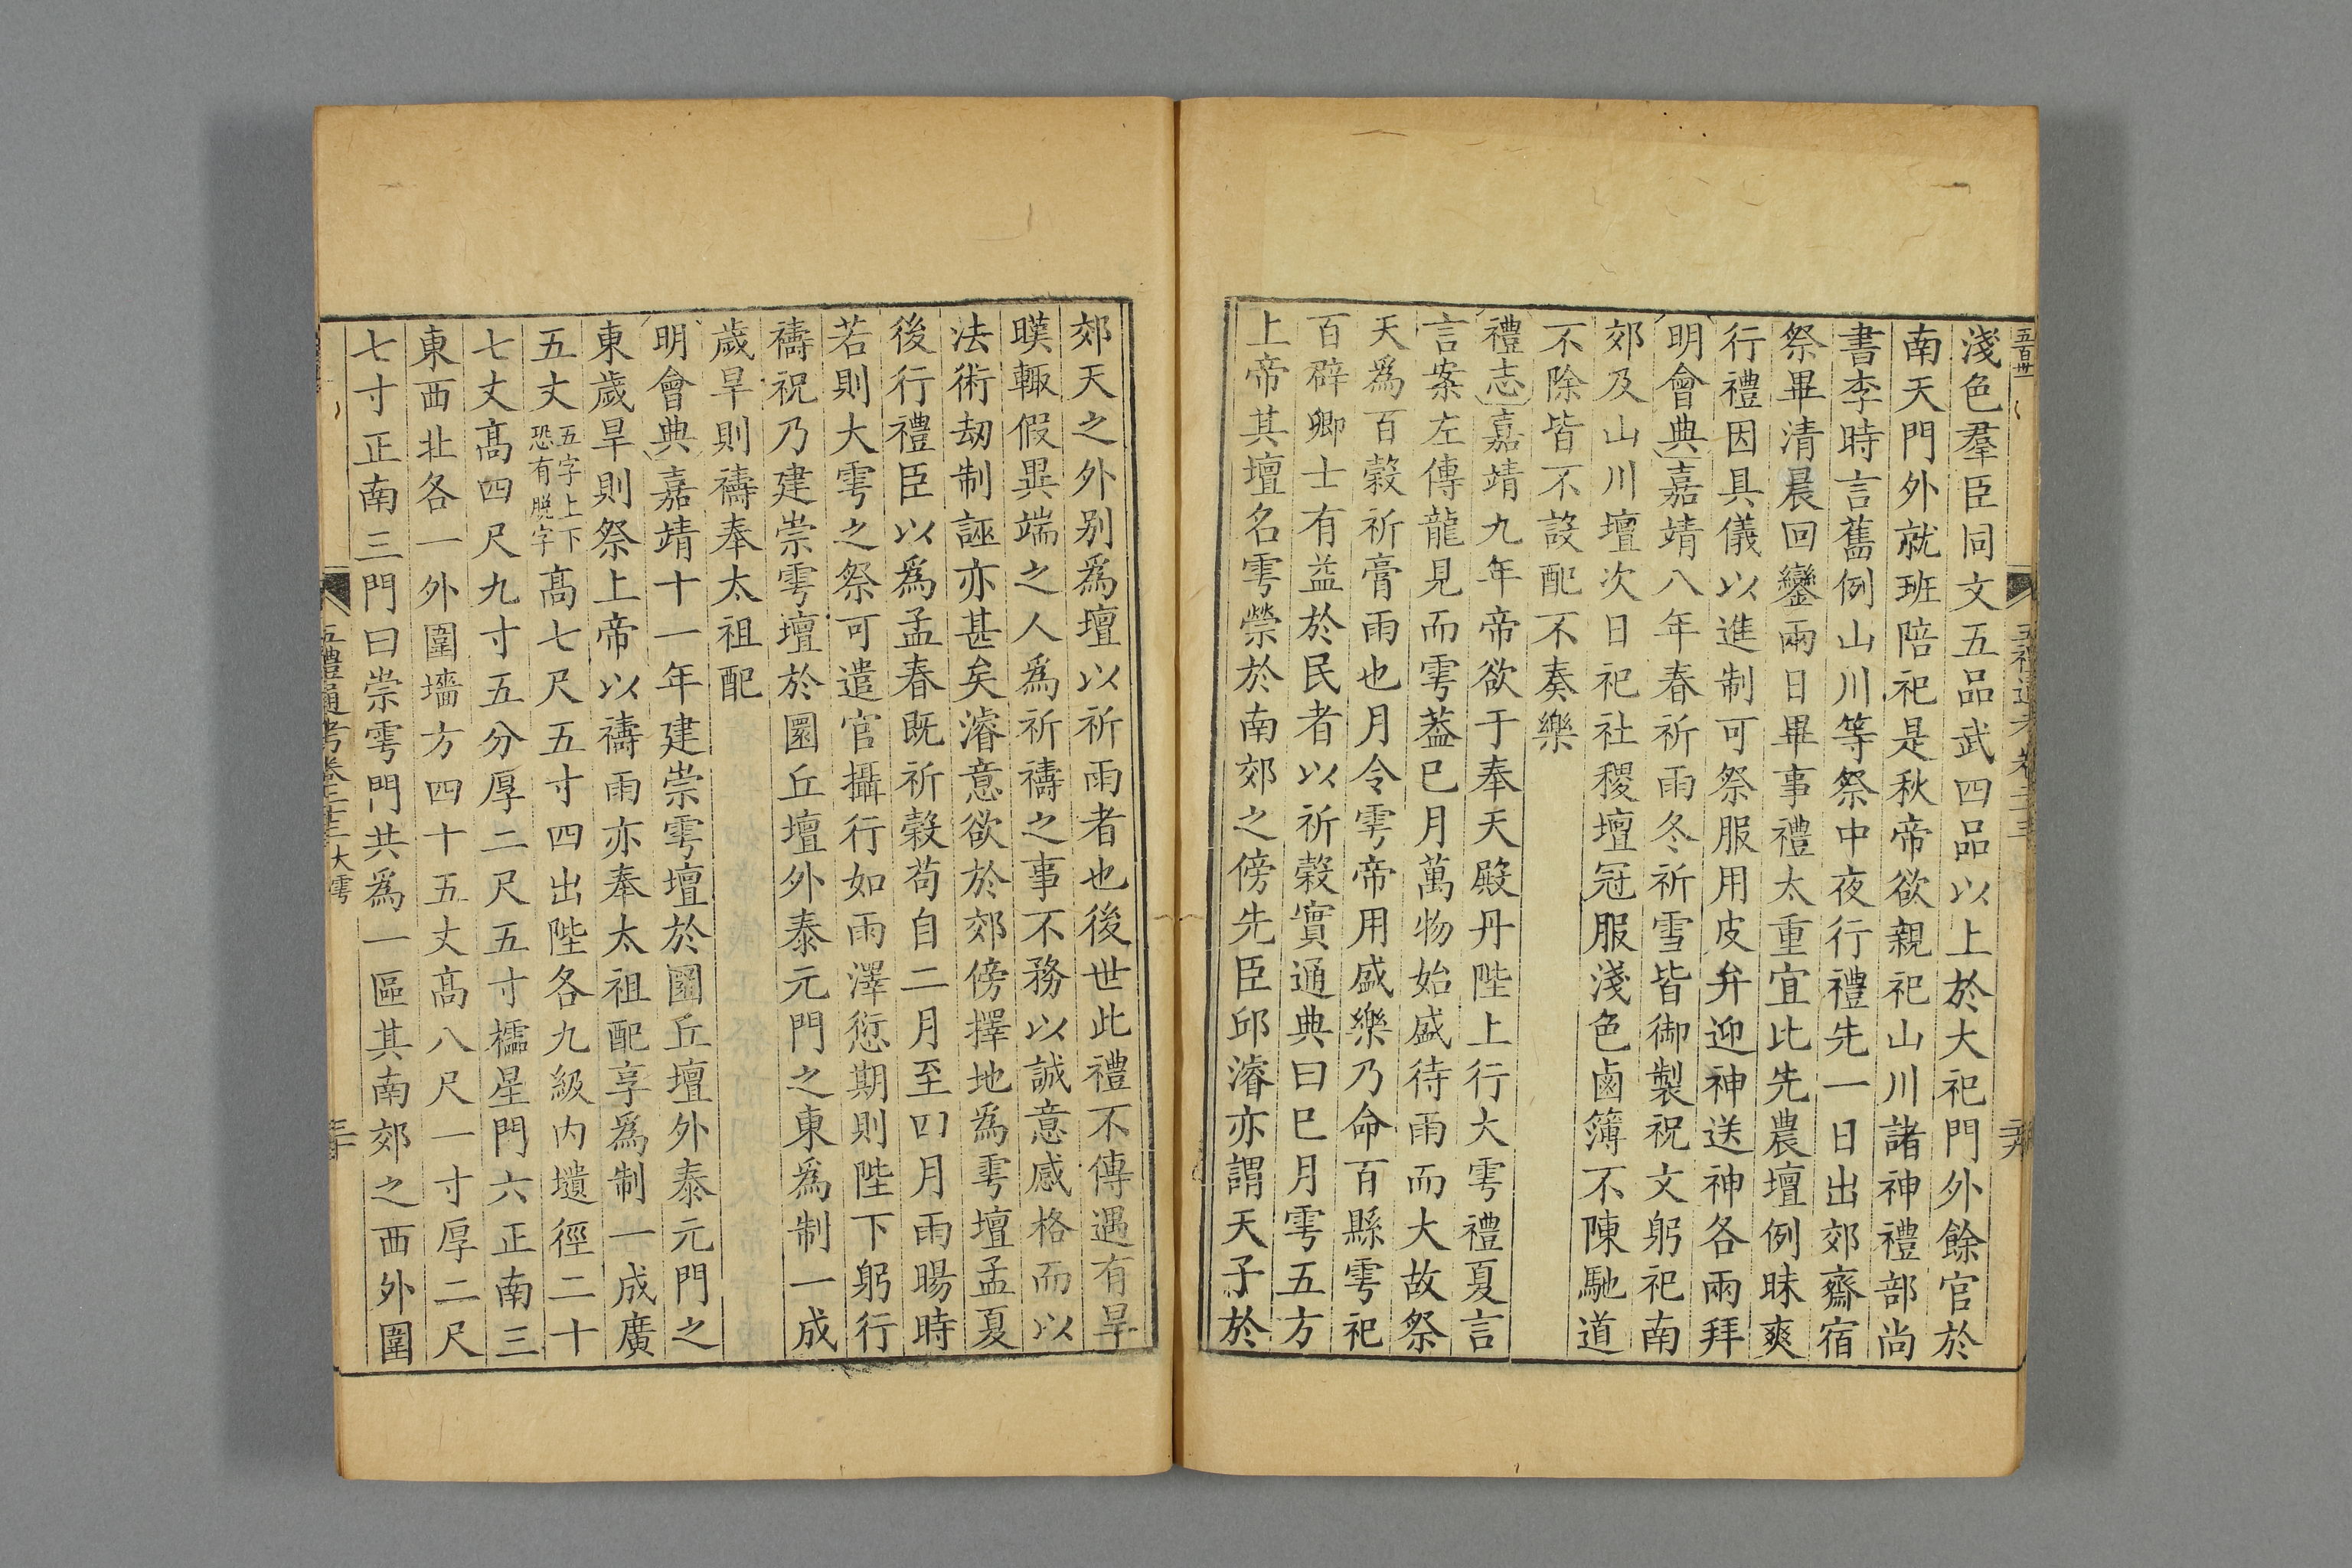 淺色羣臣同文五品武四品以上於大祀門外餘官於
南天門外就班陪祀是秋帝欲親祀山川諸神禮部尚
書李時言舊例山川等祭中夜行禮先一日出郊齋宿
祭畢清晨回鑾兩日畢事禮太重宜比先農壇例昧爽
行禮因具儀以進制可祭服用皮弁迎神送神各兩拜
明會典嘉靖八年春祈雨冬祈雪皆御製祝文躬祀南
郊及山川壇次日祀社稷壇冠服淺色鹵簿不陳馳道
不除皆不設配不奏樂
禮志嘉靖九年帝欲于奉天殿丹陛上行大雩禮夏言
言案左傳龍見而雩葢巳月萬物始盛待雨而大故祭
天爲百穀祈膏雨也月令雩帝用盛樂乃命百縣雩祀
百辟卿士有益於民者以祈穀實通典曰巳月雩五方
上帝其壇名雩禜於南郊之傍先臣邱濬亦謂天子於
郊天之外别爲壇以祈雨者也後世此禮不傳遇有旱
暵輙假異端之人爲祈禱之事不務以誠意感格而以
法術刼制誣亦甚矣濬意欲於郊傍擇地爲雩壇孟夏
後行禮臣以爲孟春旣祈穀苟自二月至四月雨暘時
若則大雩之祭可遣官攝行如雨澤愆期則陛下躬行
禱祝乃建崇雩壇於圜丘壇外泰元門之東爲制一成
歲旱則禱奉太祖配
明會典嘉靖十一年建崇雩壇於圜丘壇外泰元門之
東歲旱則祭上帝以禱雨亦奉太祖配享爲制一成廣
五丈五字上下恐有脫字高七尺五寸四出陛各九級内壝徑二十
七丈高四尺九寸五分厚二尺五寸櫺星門六正南三
東西北各一外圍墻方四十五丈高八尺一寸厚二尺
七寸正南三門曰崇雩門共爲一區其南郊之西外圍
五禮通考卷二十三 大雩
三十